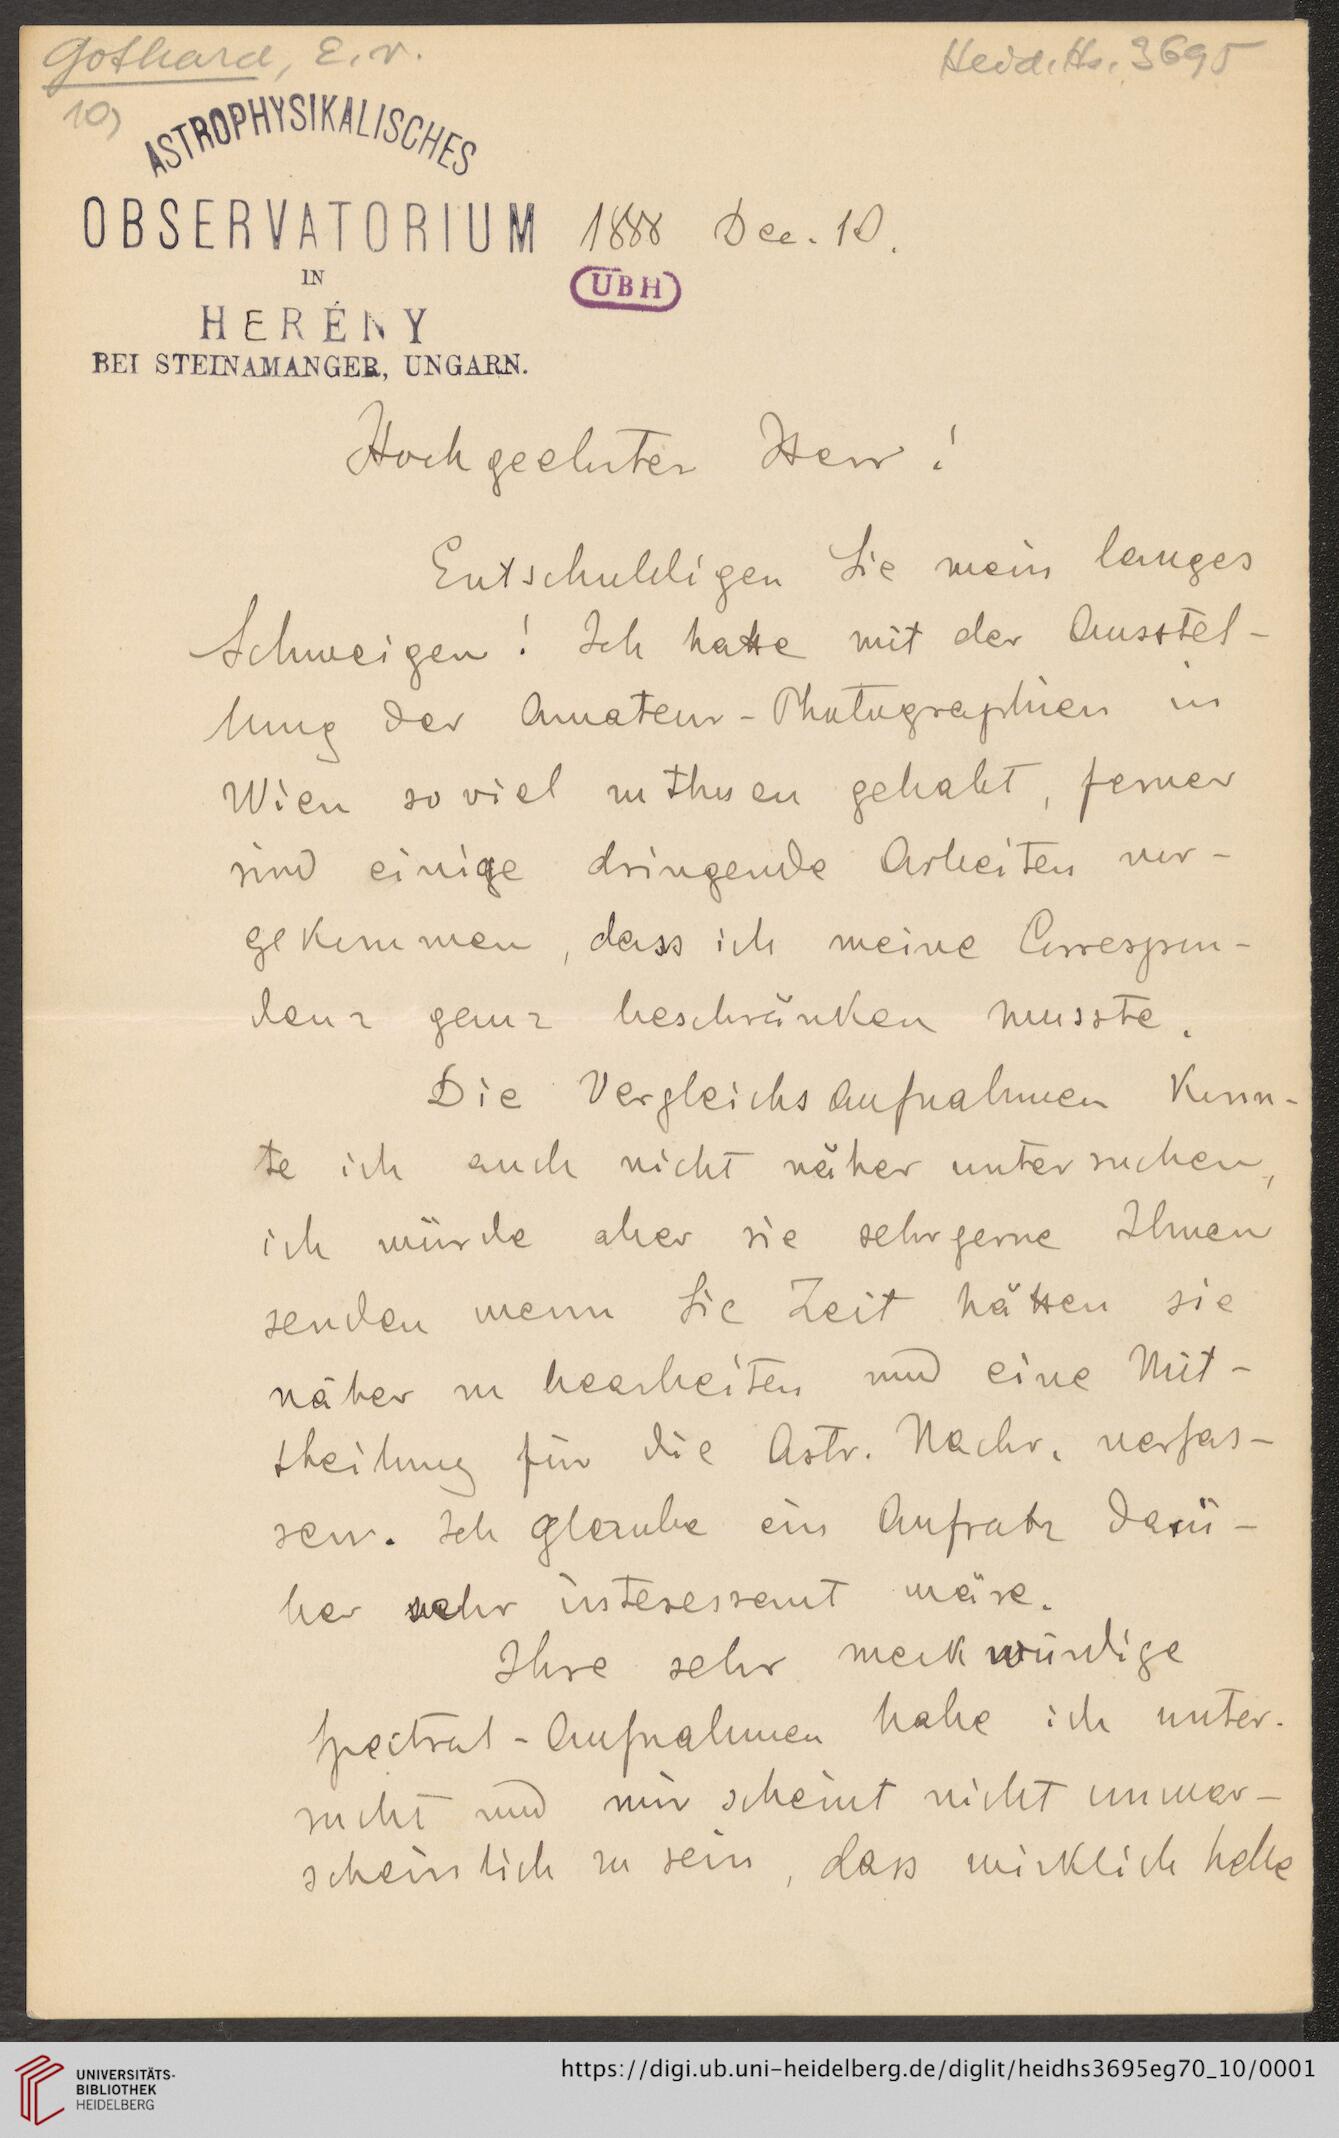 Gothard, E. v.
Heid. Hs. 3695
10)
ASTROPHYSIKALISCHES
OBSERVATORIUM
1888 Dec. 10.
IN
UBH
HERÉNY
BEI STEINAMANGER, UNGARN.
Hochgeehrter Herr!
Entschuldigen Sie mein langes
Schweigen! Ich hatte mit der Ausstel-
lung der Amateur-Photographien in
Wien so viel zu thuen gehabt, ferner
sind einige dringende Arbeiten vor-
gekommen, dass ich meine Correspon-
denz ganz beschränken musste.
Die Vergleichsaufnahmen konn-
te ich auch nicht näher untersuchen,
ich würde aber sie sehr gerne Ihnen
senden wenn Sie Zeit hätten sie
näher zu bearbeiten und eine Mit-
theilung für die Astr. Nachr. verfas-
sen. Ich glaube ein Aufsatz darü-
ber sehr interessant wäre.
Ihre sehr merkwürdige
Spectral-Aufnahmen habe ich unter-
sucht und mir scheint nicht unwar-
scheinlich zu sein, dass wirklich helle
UNIVERSITÄTS-
BIBLIOTHEK
HEIDELBERG
https://digi.ub.uni-heidelberg.de/diglit/heidhs3695eg70_10/0001